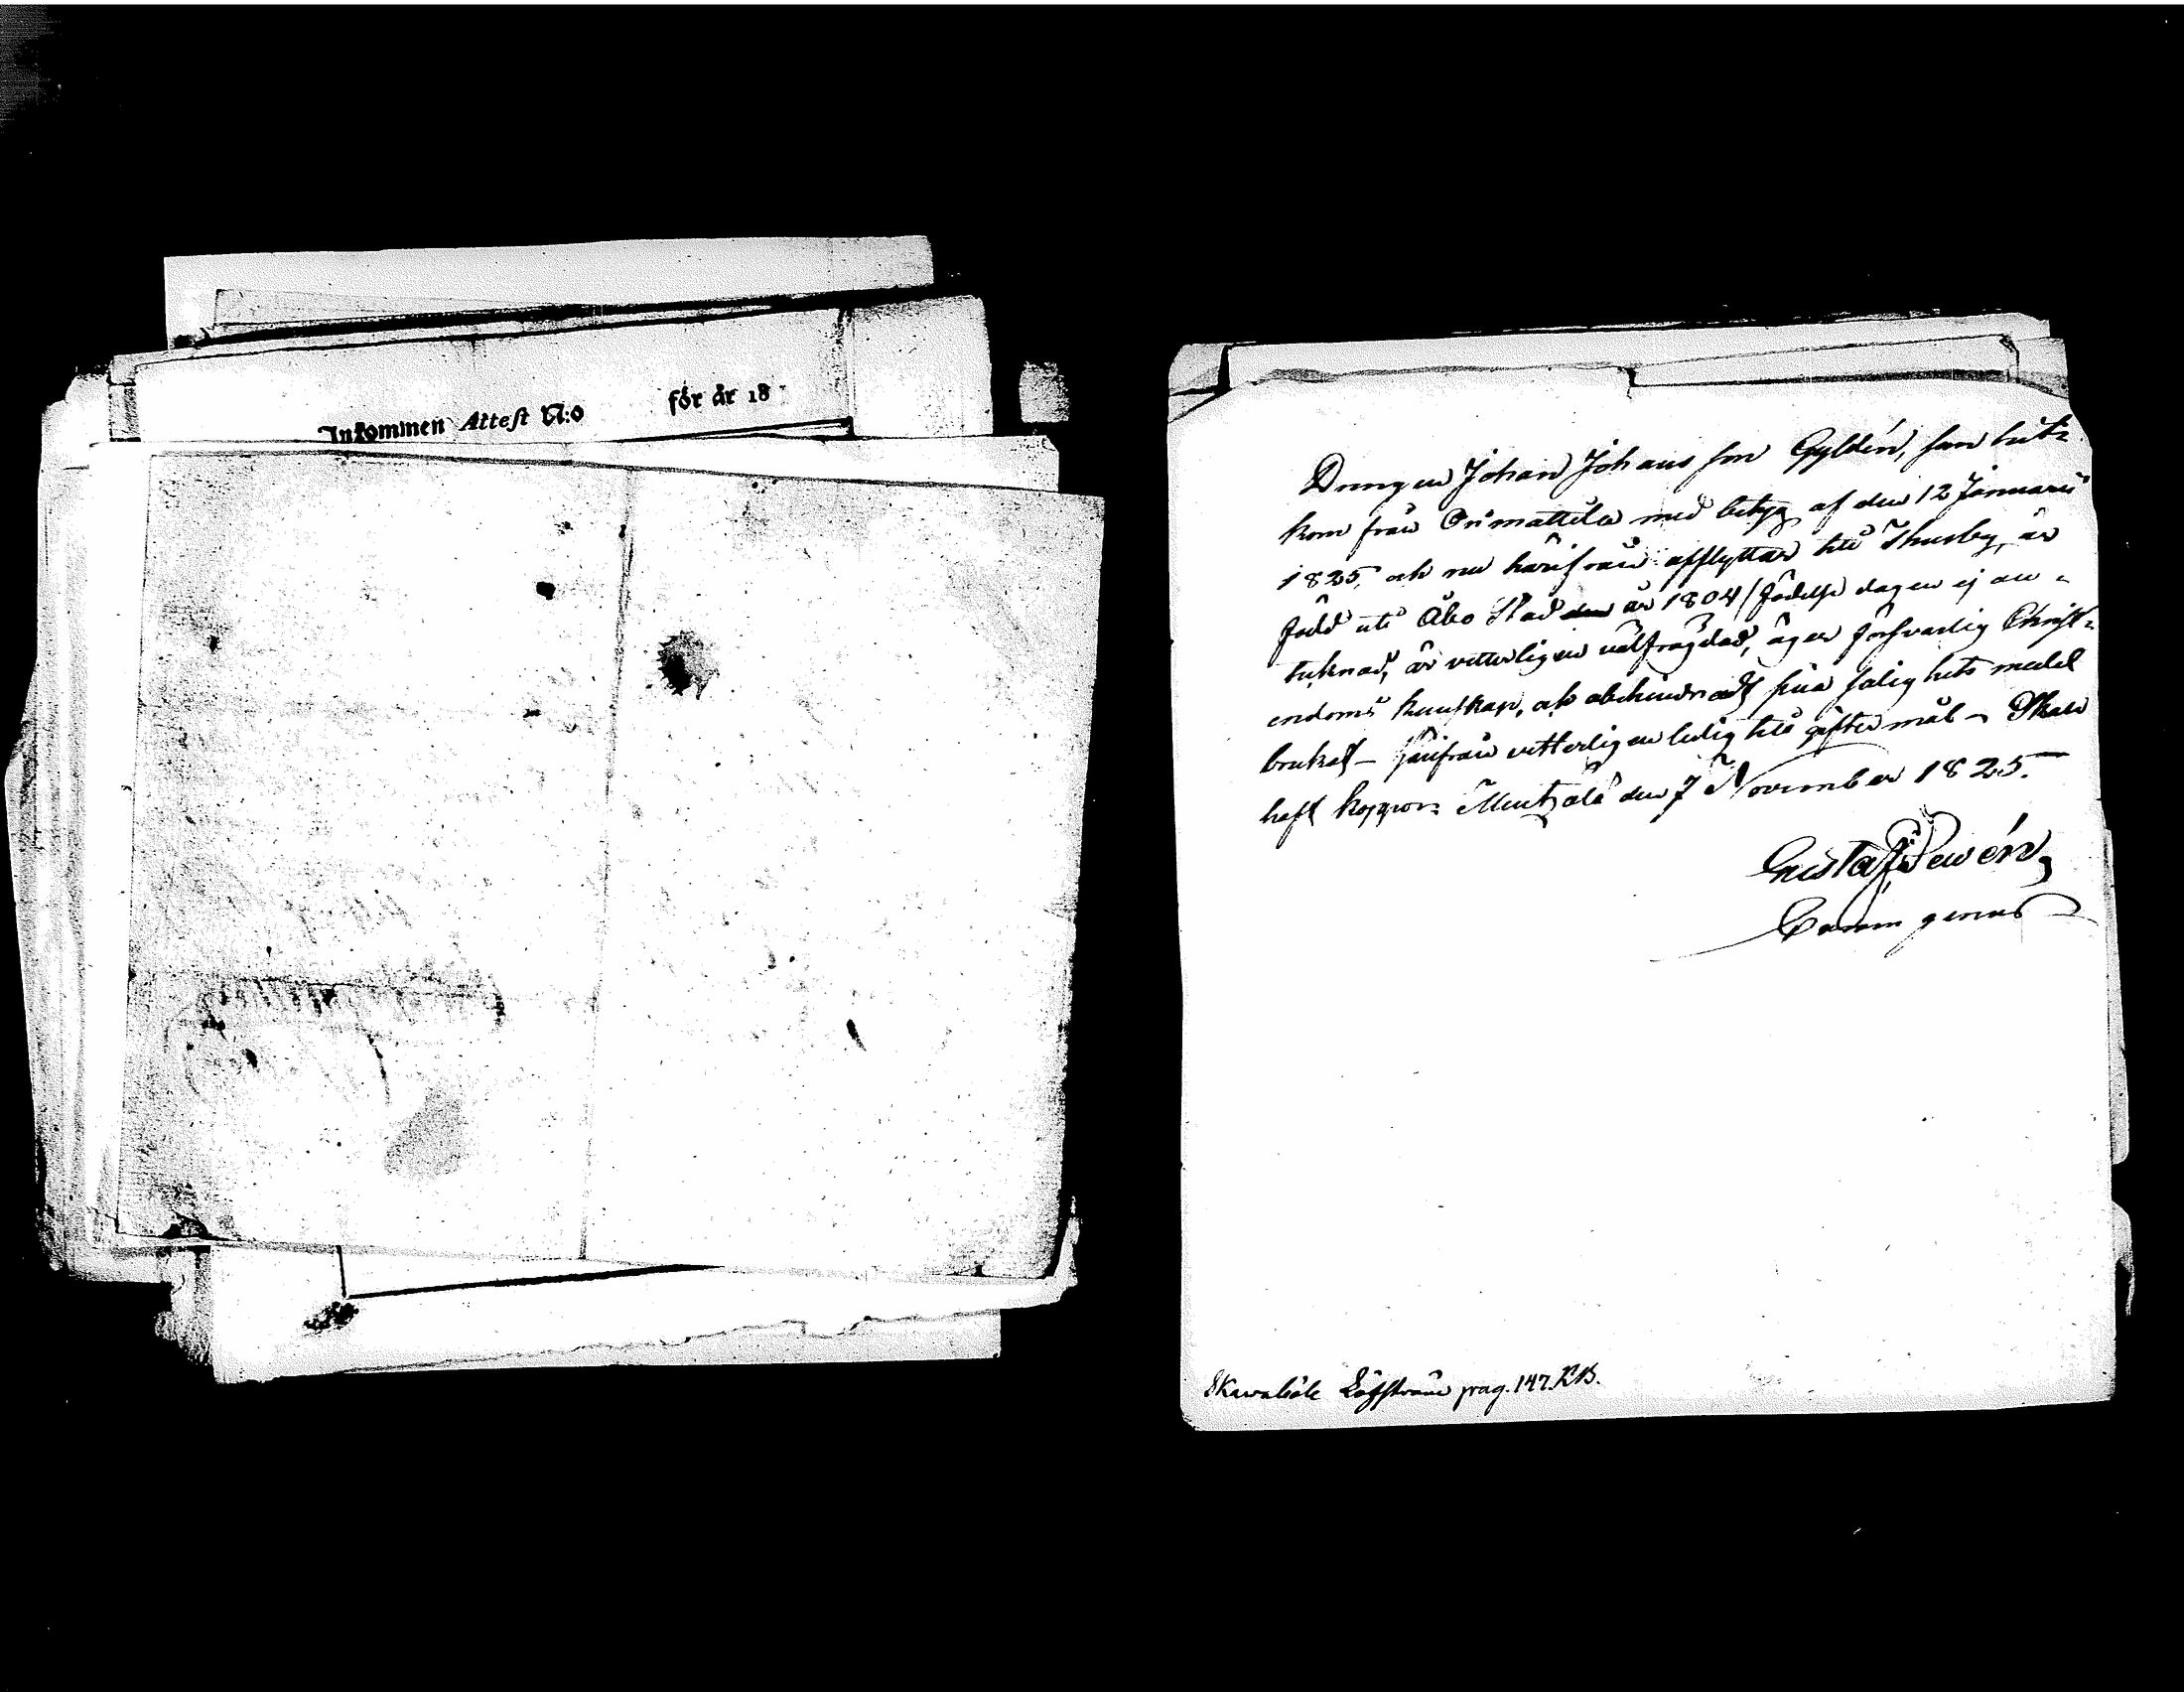 Inkommen Attest N:o för år 18
Drengen Johan Johans son Gyldén, som hit-
kom från Orimattila med betyg af den 12 Januarii
1825, och nu härifrån afflyttar till Thusby, är
född uti Åbo Stad den år 1804 / födelse dagen ej an-
teknad, är vitterligen välfrägdad, äger försvarlig Christ-
endoms kunskap, och obehindradt sina salighets medel
brukat – härifrån vitterligen ledig till gifter mål – Skall
haft koppor. Mentzälä den 7 November 1825.
Gustaf
Skavaböle Löfström pag. 147. R.B.